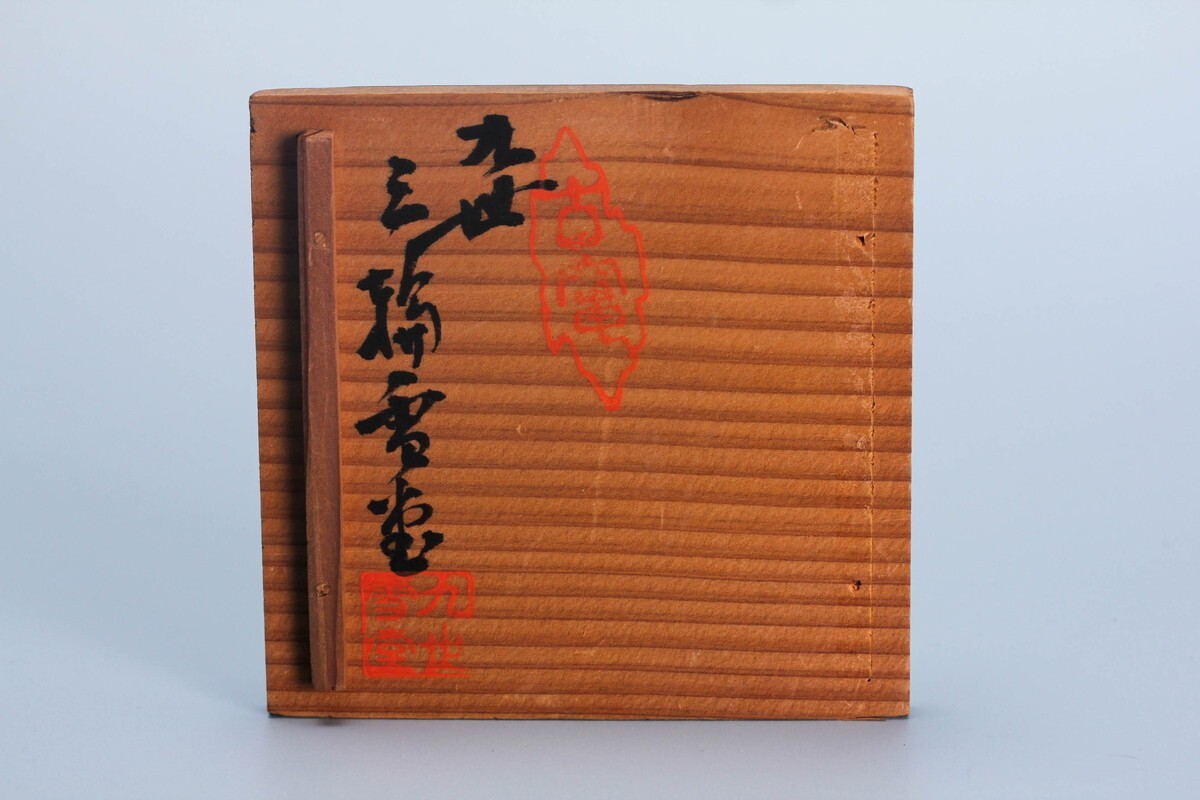 古竃
九世
三輪雪堂
九世
雪堂